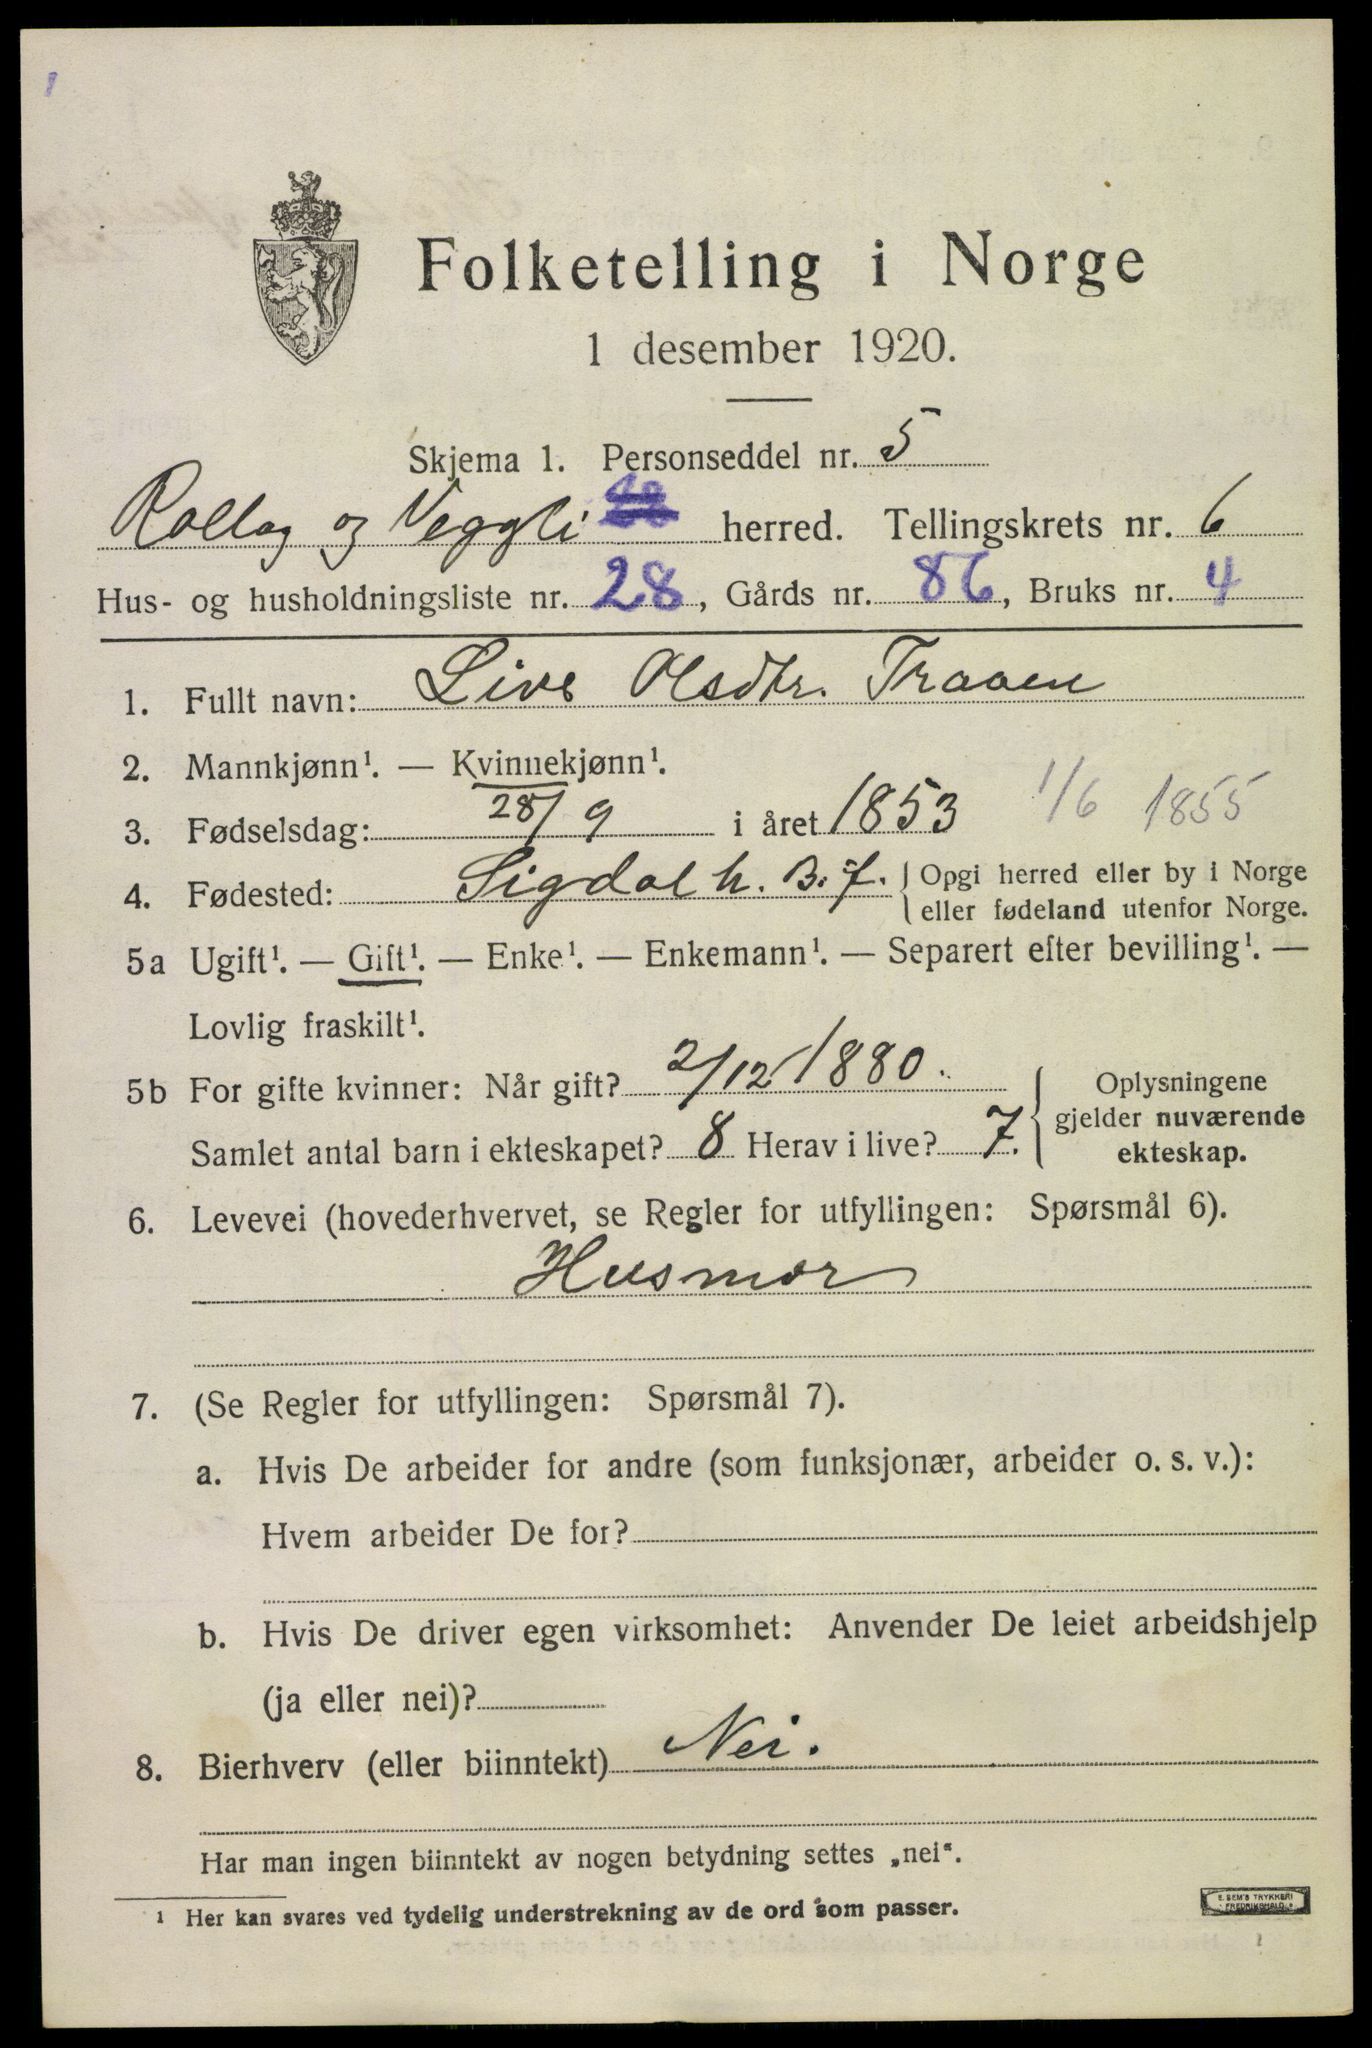 Folketelling i Norge
1 desember 1920.
Skjema 1. Personseddel nr. 5
Rollag og Veggli herred. Tellingskrets nr. 6
Hus- og husholdningsliste nr. 28, Gårds nr. 86, Bruks nr. 4
1. Fullt navn: Live Olsdtr. Traaen
2. Mannkjønn¹. — Kvinnekjønn¹.
3. Fødselsdag: 28/9 i året 1853 1/6 1855
4. Fødested: Sigdal h. B. f. { Opgi herred eller by i Norge
eller fødeland utenfor Norge.
5a Ugift¹. — Gift¹. — Enke¹. — Enkemann¹. — Separert efter bevilling¹. —
Lovlig fraskilt¹.
5b For gifte kvinner: Når gift? 2/12 1880.
Samlet antal barn i ekteskapet? 8 Herav i live? 7.
Oplysningene
gjelder nuværende
ekteskap.
6. Levevei (hovederhvervet, se Regler for utfyllingen: Spørsmål 6).
Husmor
7. (Se Regler for utfyllingen: Spørsmål 7).
a. Hvis De arbeider for andre (som funksjonær, arbeider o. s. v.):
Hvem arbeider De for?
b. Hvis De driver egen virksomhet: Anvender De leiet arbeidshjelp
(ja eller nei)?
8. Bierhverv (eller biinntekt) Nei.
Har man ingen biinntekt av nogen betydning settes „nei“.
¹ Her kan svares ved tydelig understrekning av de ord som passer.
E. SEM'S TRYKKERI
FREDRIKSHALD